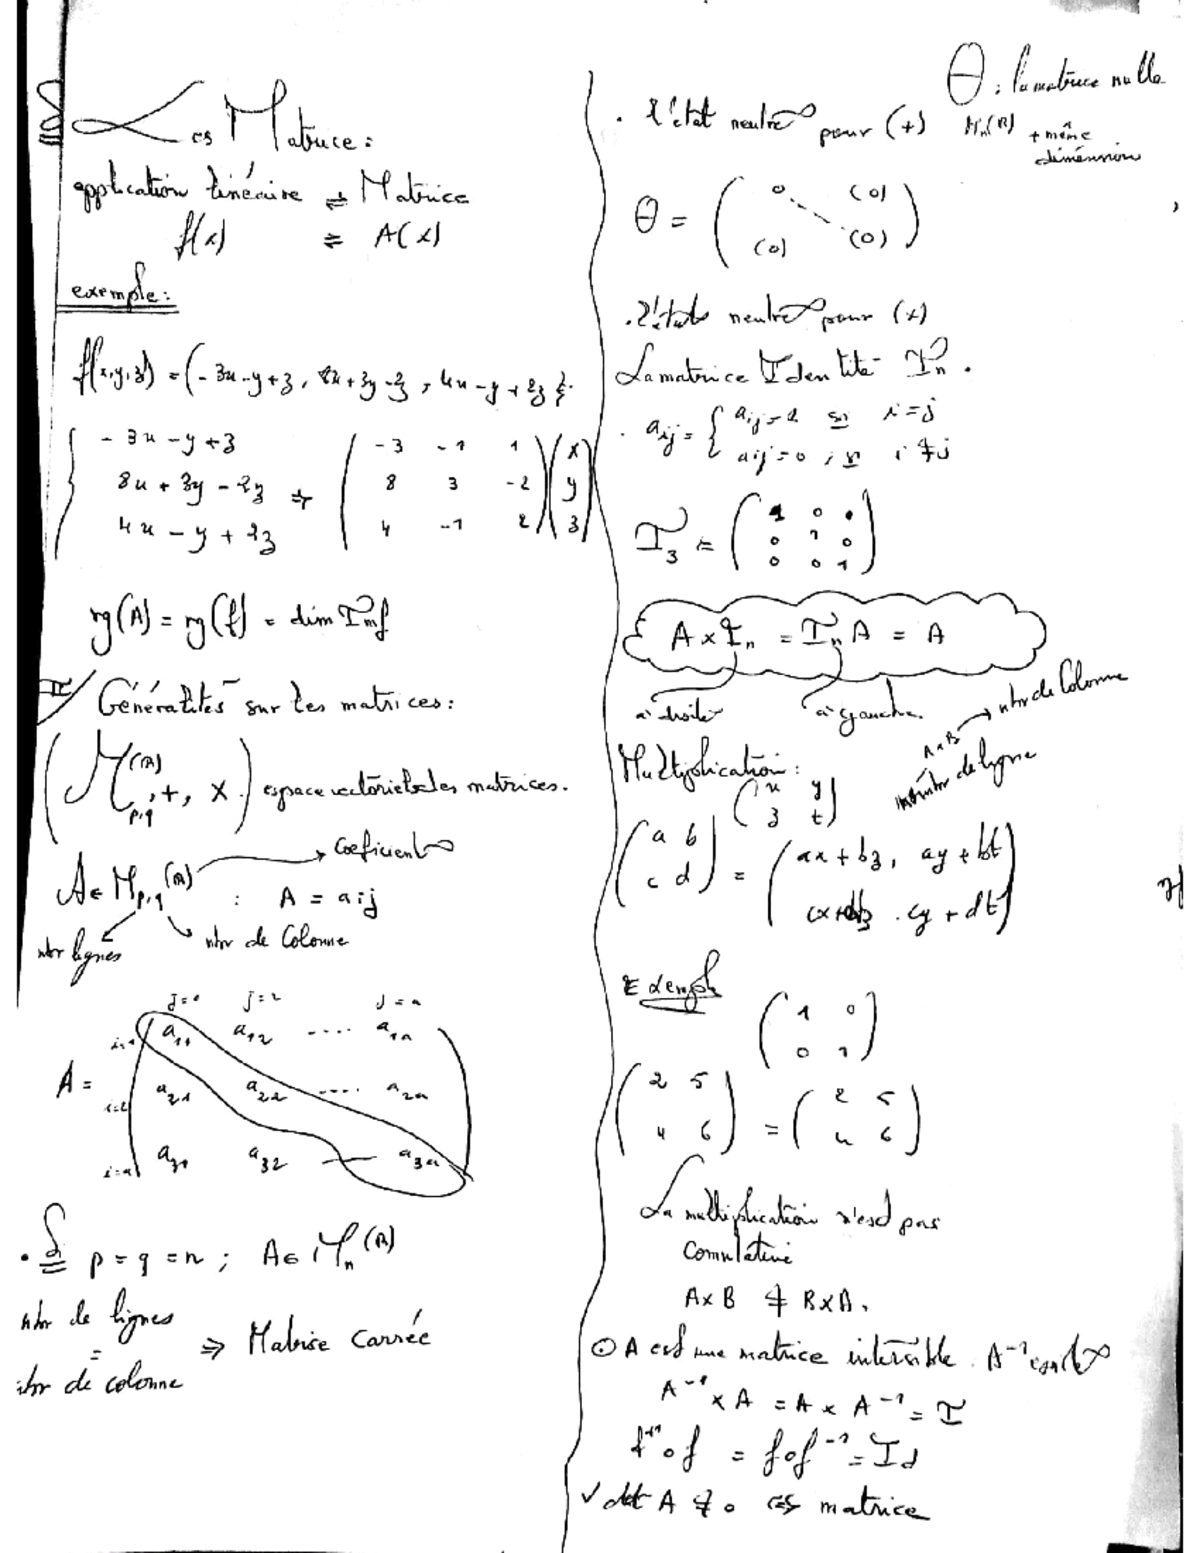 Les Matrice :
application linéaire ⇌ Matrice
f(x) ⇌ A(x)
exemple :
f(x,y,z) = (-3x-y+z, 8x+3y-2z, 4x-y+2z)
{ -3x-y+z
8x+3y-2z ⇒ ( -3 -1 1 / 8 3 -2 / 4 -1 2 ) ( x / y / z )
4x-y+2z
rg(A) = rg(f) = dim Imf
II/ Généralités sur les matrices :
(M p,q (R), +, ×) espace vectoriel des matrices.
A ∈ M p,q (R) → Coeficient : A = aij
nbr lignes nbr de Colonne
j=2
A = ( a11 a12 .... a1n
i=2 a21 a22 .... a2n
a32 — a3n )
• Si p = q = n ; A ∈ Mn(R)
nbr de lignes
= ⇒ Matrise Carrée
nbr de colonne
θ : la matrice nulle
. l'état neutre pour (+) Mn(R) + même dimension
θ = ( 0 (0) / (0) (0) )
. neutre pour (×)
La matrice Identité In .
. aij = { aij=1 si i=j
aij=0 , si i≠j
I3 = ( 1 0 0 / 0 1 0 / 0 0 1 )
A × In = In A = A
à droite à gauche.
A×B → nbr de Colonne
nbr de ligne
Multiplication :
( x y / z t )
( a b / c d ) = ( ax + bz, ay + bt / cx+dz . cy + dt )
Exemple
( 1 0 / 0 1 )
( 2 5 / 4 6 ) = ( 2 5 / 4 6 )
La multiplication n'esd pas
Comulative
A×B ≠ B×A.
⊙ A est une matrice . A⁻¹
A⁻¹ × A = A × A⁻¹ = I
f⁻¹∘f = f∘f⁻¹ = Id
✓ det A ≠ 0 ⇔ matrice